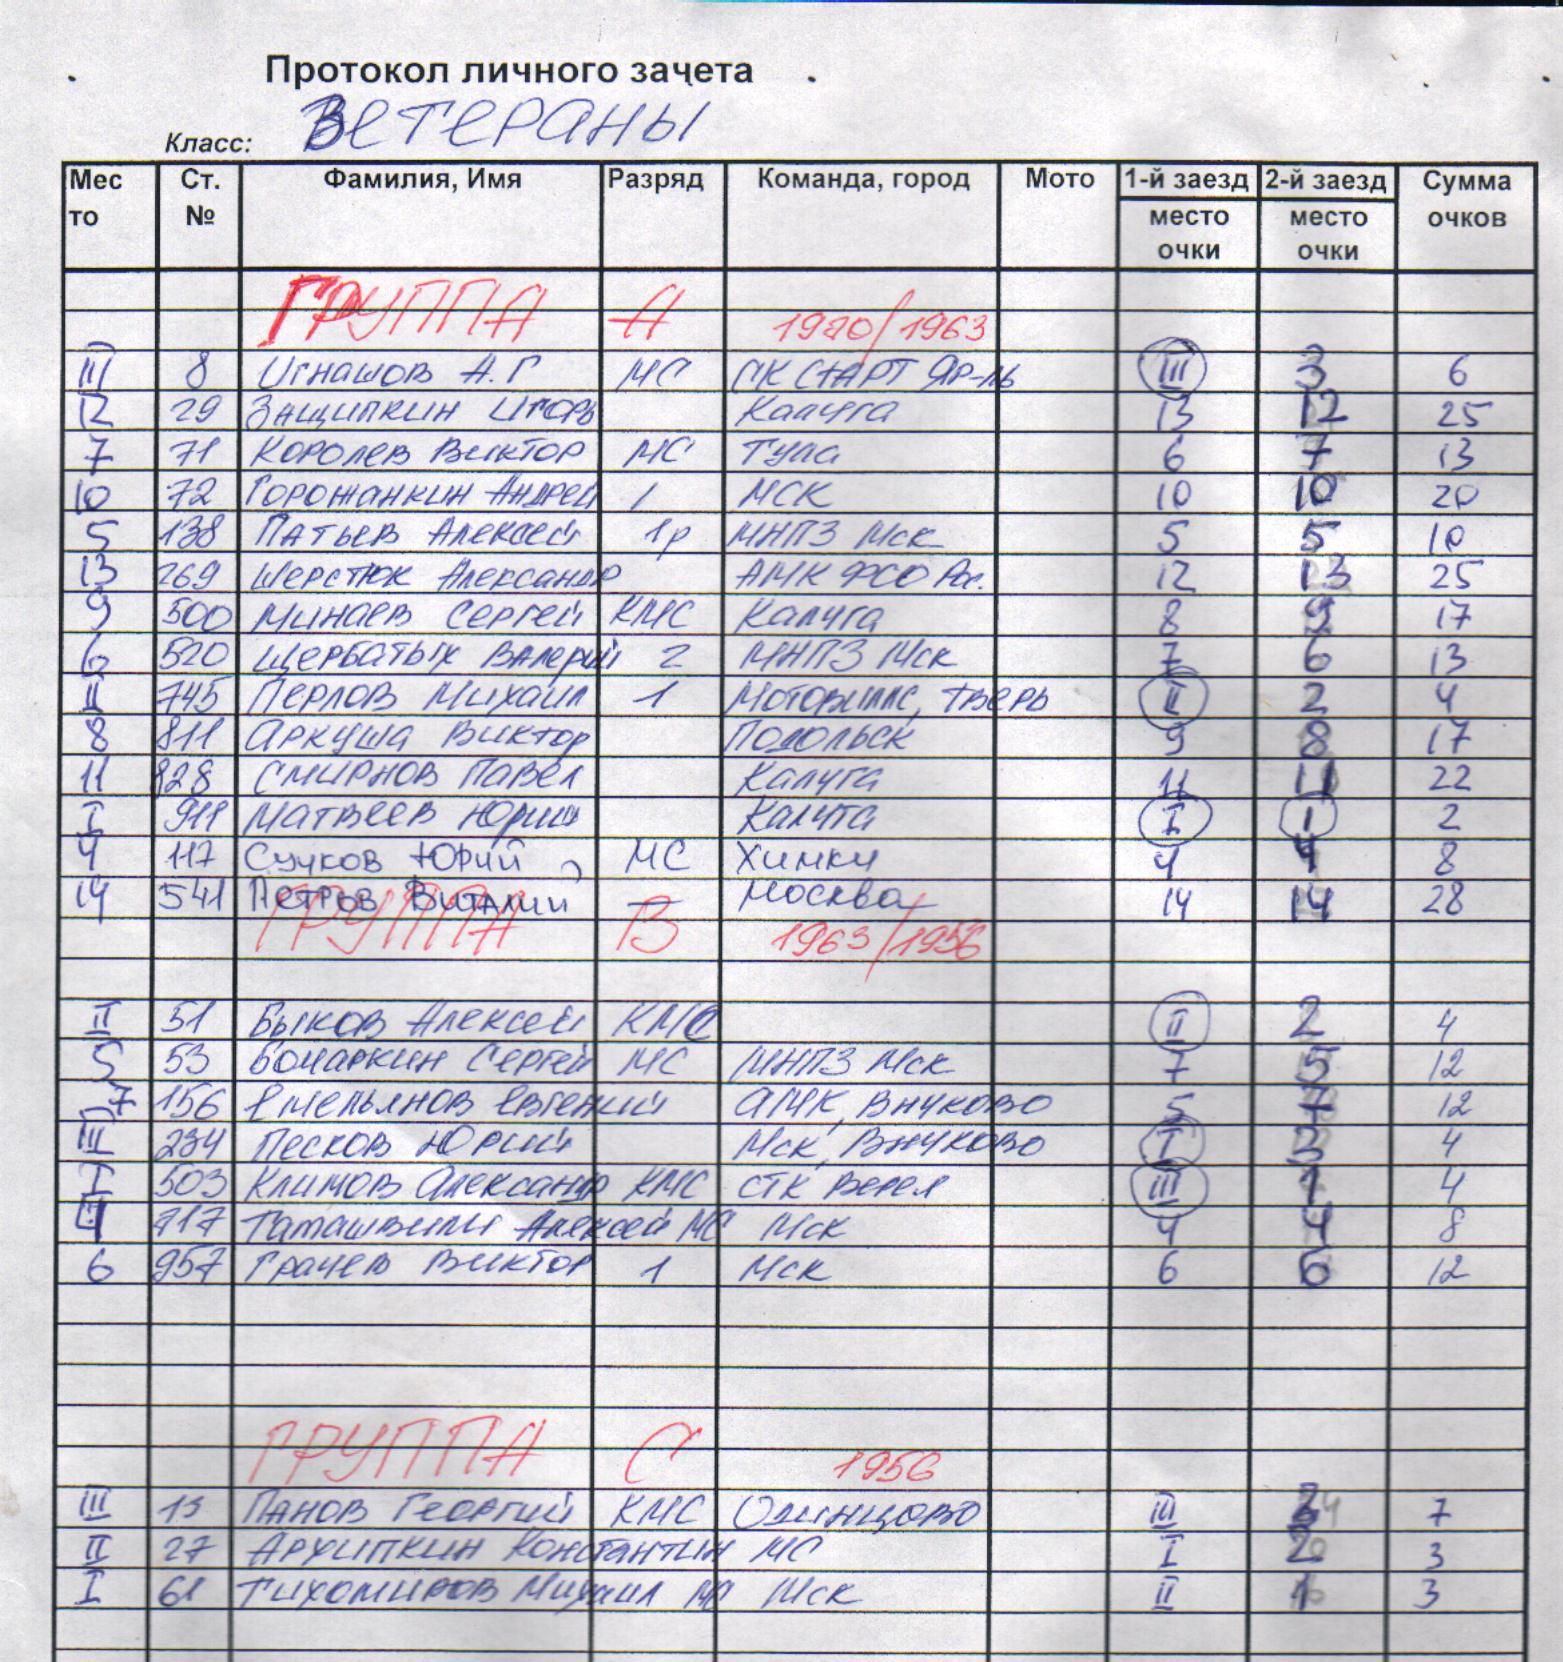 Протокол личного зачета
Класс: Ветераны
Место Ст. № Фамилия, Имя Разряд Команда, город Мото 1-й заезд место очки 2-й заезд место очки Сумма очков
ГРУППА А 1970/1963
III 8 Игнашов А.Г МС СК СТАРТ Яр-ль III 3 6
12 29 Защипкин Игорь Калуга 13 12 25
7 71 Королев Виктор МС Тула 6 7 13
10 72 Горожанкин Андрей 1 МСК 10 10 20
5 138 Патьев Алексей 1р МНПЗ Мск 5 5 10
13 269 Шерстюк Александр АМК ФСО Рос. 12 13 25
9 500 Минаев Сергей КМС Калуга 8 9 17
6 520 Щербатых Валерий 2 МНПЗ Мск 7 6 13
II 745 Перлов Михаил 1 Тверь II 2 4
8 811 Аркуша Виктор Подольск 9 8 17
11 828 Смирнов Павел Калуга 11 11 22
I 911 Матвеев Юрий Калуга I 1 2
4 117 Сучков Юрий МС Химки 4 4 8
14 541 Петров Виталий — Москва 14 14 28
ГРУППА В 1963/1956
II 51 Быков Алексей КМС II 2 4
5 53 Сергей МС МНПЗ Мск 7 5 12
7 156 Емельянов Евгений АМК, Внуково 5 7 12
III 234 Песков Юрий Мск, Внуково I 3 4
I 503 Климов Александр КМС СТК Верея III 1 4
4 717 Таташвили Алексей МС Мск 4 4 8
6 957 Грачев Виктор 1 Мск 6 6 12
ГРУППА С 1956
III 13 Панов Георгий КМС Одинцово III 7
II 27 Архипкин Константин МС I 2 3
I 61 Тихомиров Михаил МС Мск II 1 3